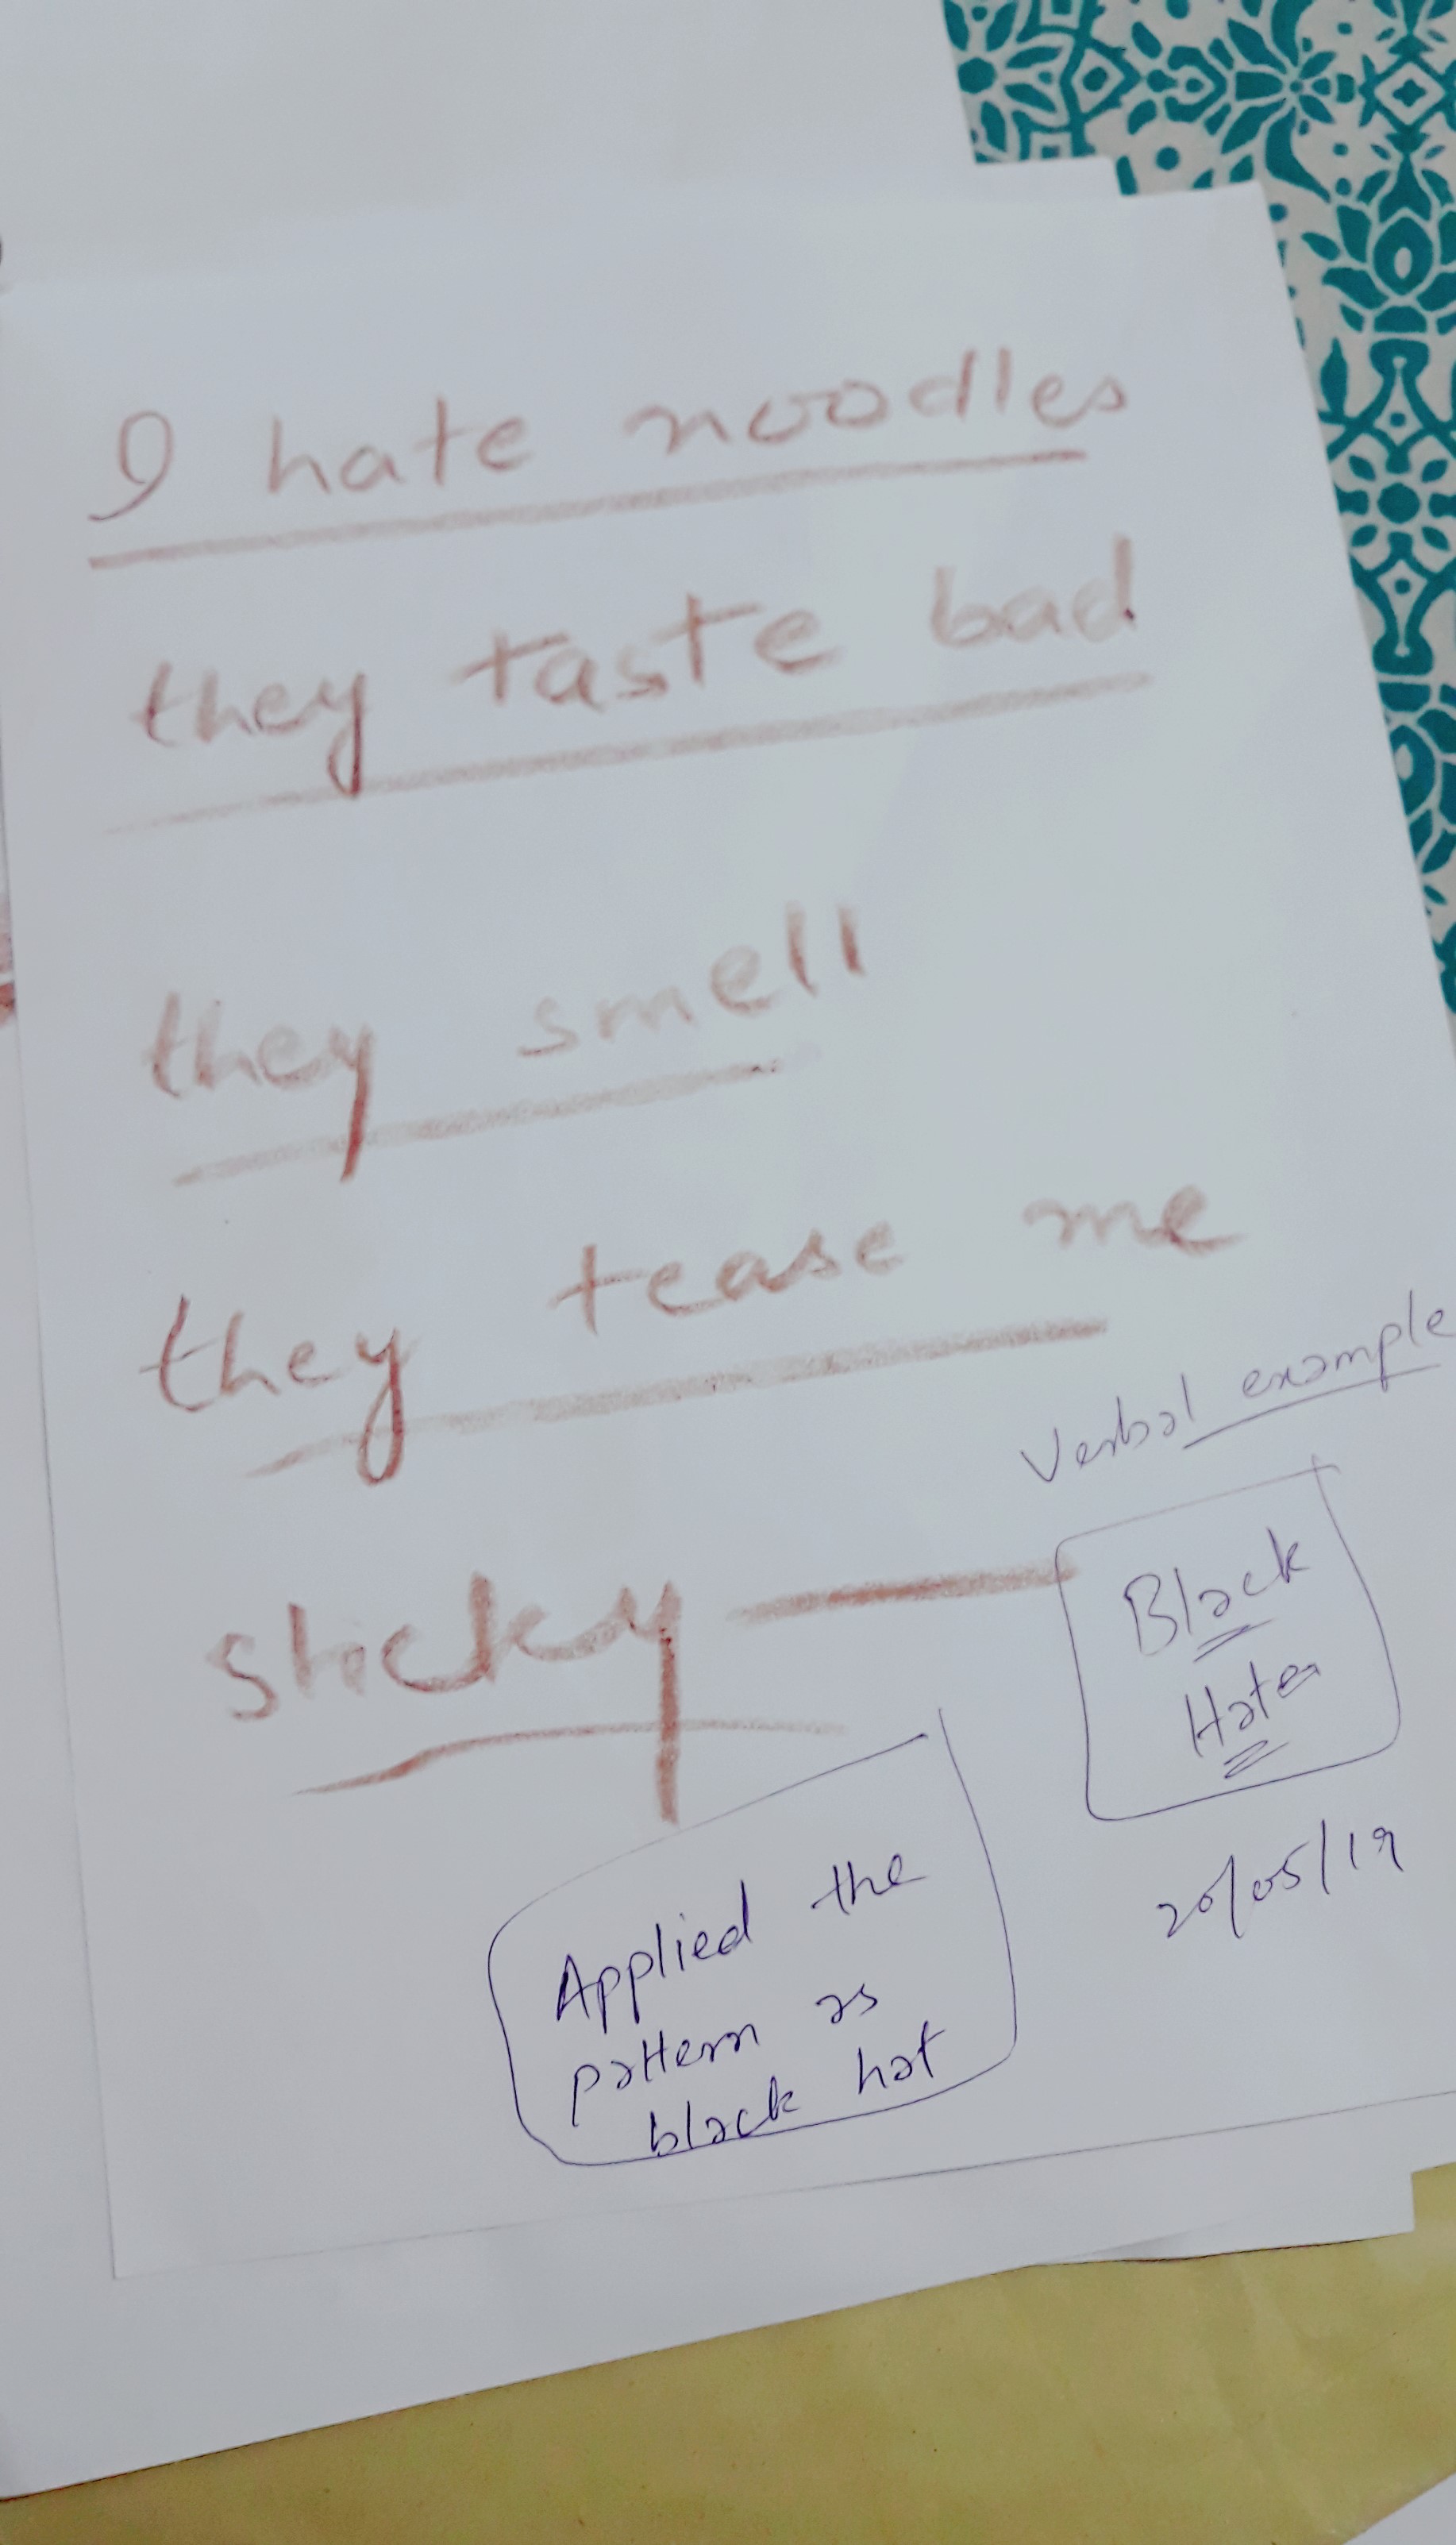 I hate noodles
they taste bad
they smell
they tease me
sticky
Verbal example
Black
Hater
20/05/19
Applied the
pattern as
black hat